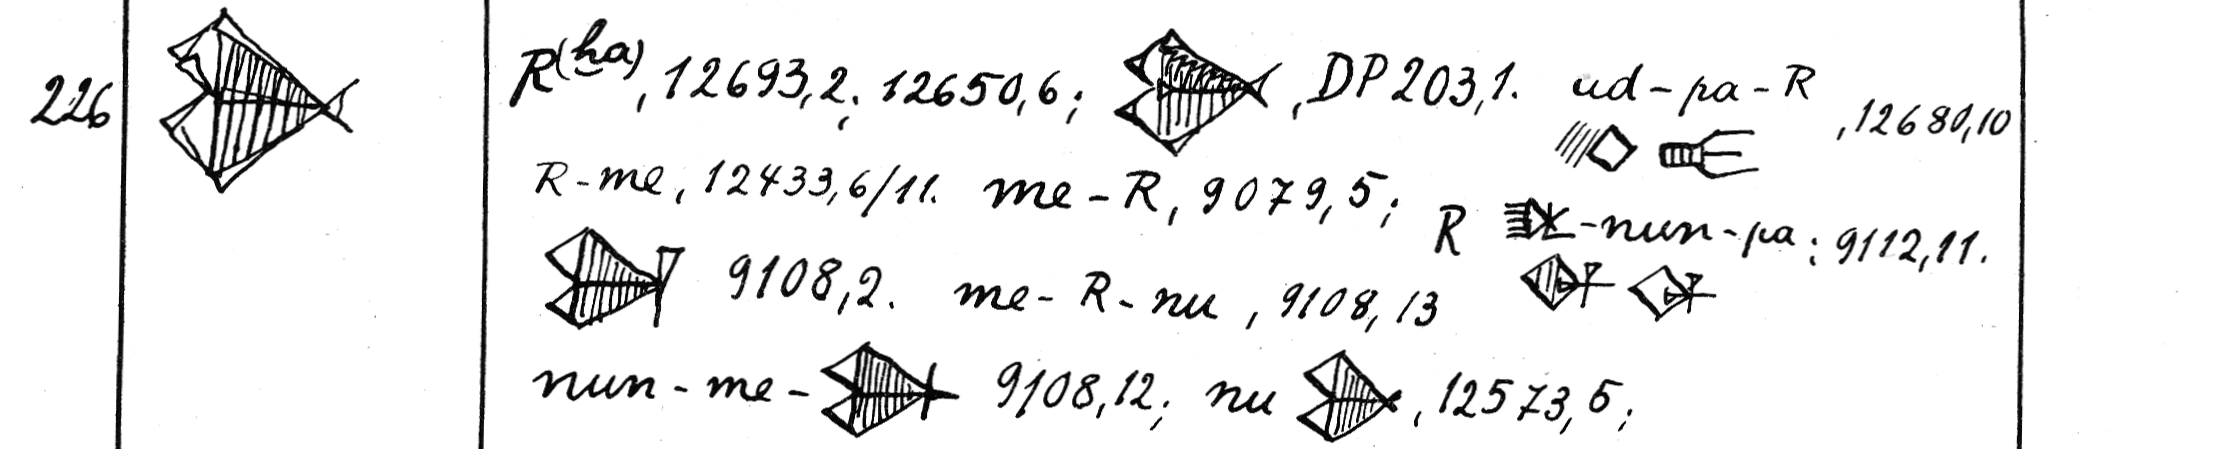 226
R(ḫa), 12693,2; 12650,6; , DP 203,1. ud-pa-R , 12680,10
R-me, 12433,6/11. me-R, 9079,5; R -nun-pa; 9112,11.
9108,2. me-R-nu, 9108,13
nun-me- 9108,12; nu , 12573,5;